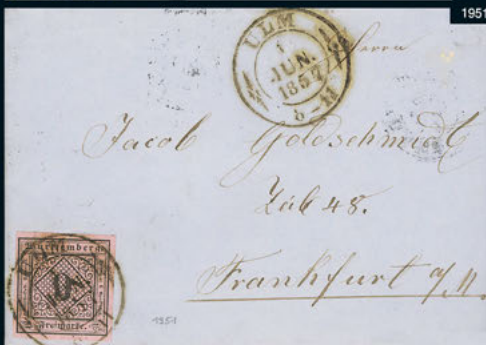 1951
ULM
1
JUN.
1857
Herrn
Jacob Goldschmidt
Frankfurt a/M.
Württemberg
9
Freimarke.
1951